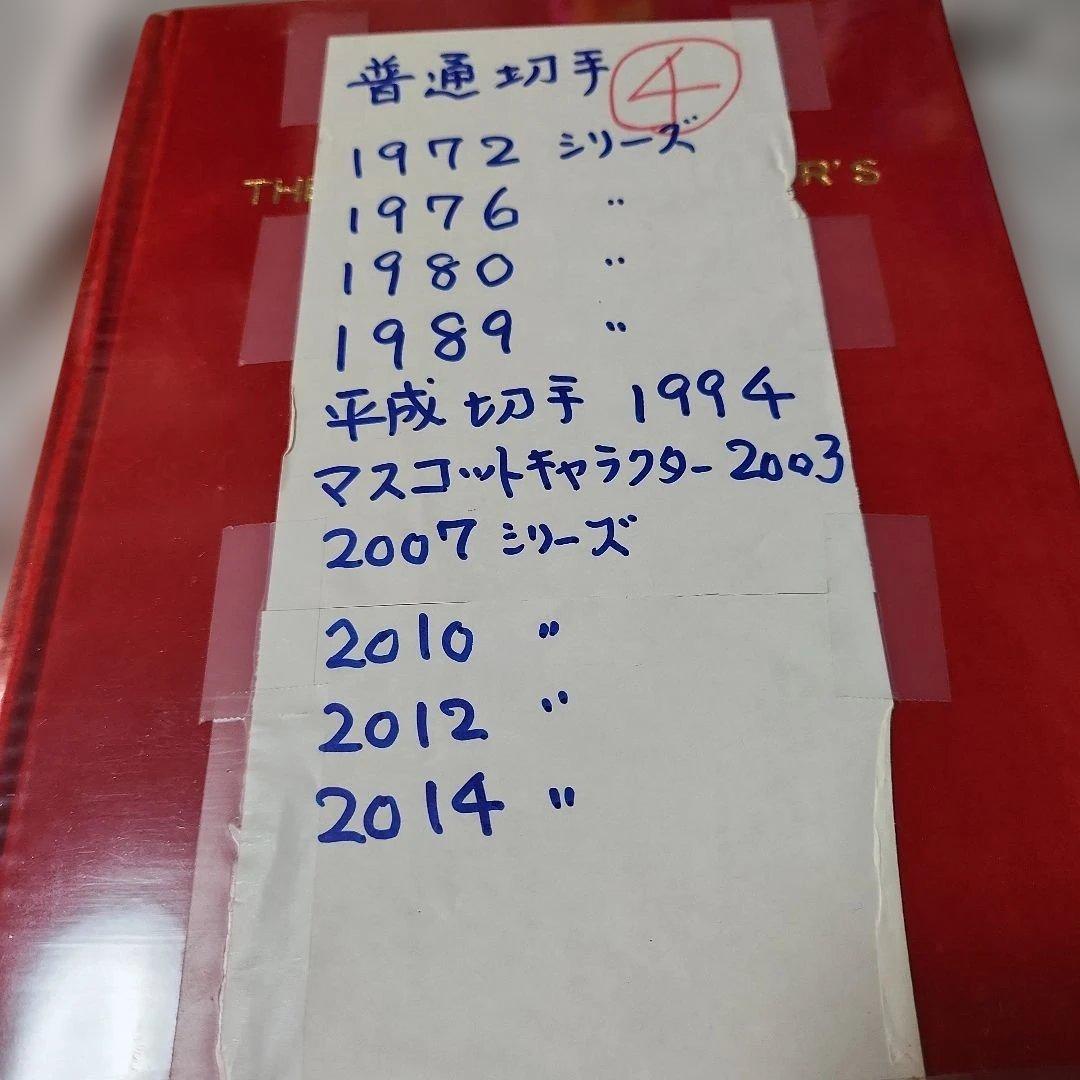 普通切手 ④
1972 シリーズ
THE R'S
1976 〃
1980 〃
1989 〃
平成切手 1994
マスコットキャラクター 2003
2007 シリーズ
2010 〃
2012 〃
2014 〃